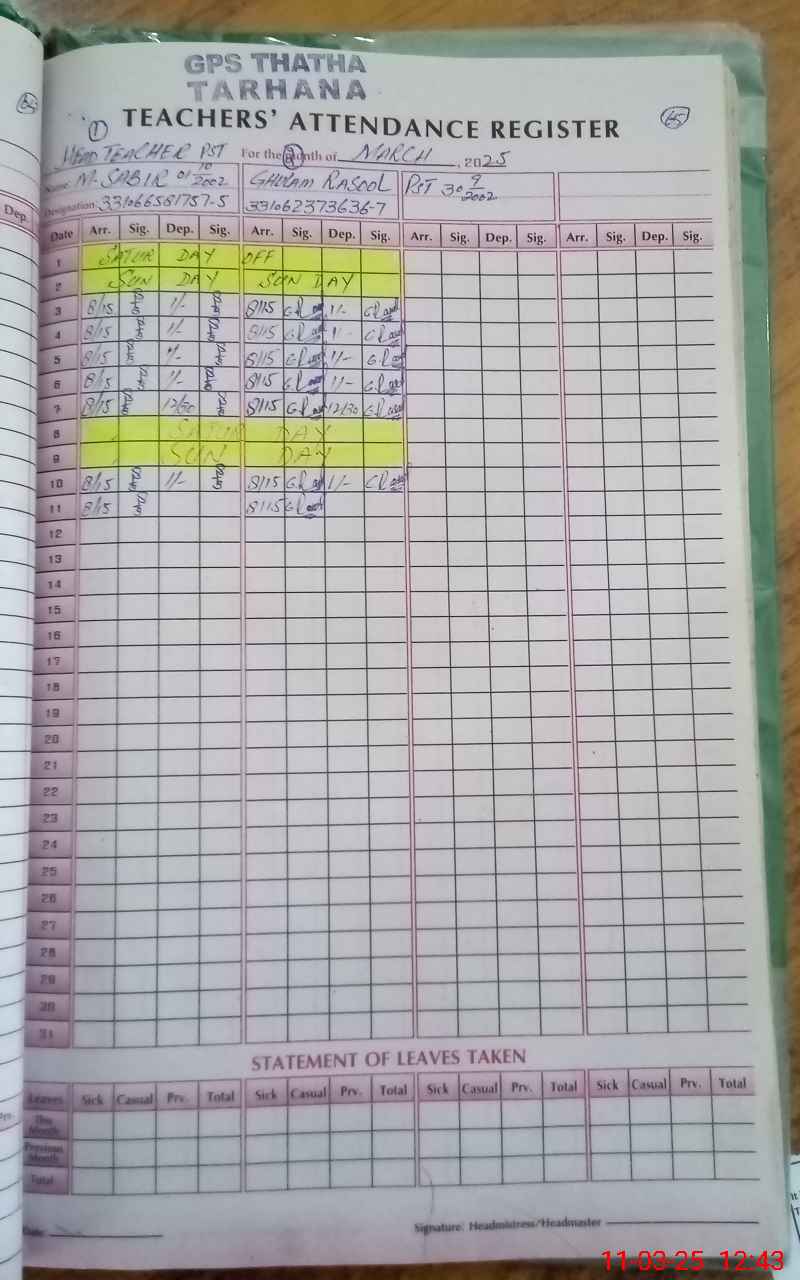 GPS THATHA
TARHANA
TEACHERS' ATTENDANCE REGISTER
① 65
HEAD TEACHER PST For the Month of MARCH, 2025
Name M. SABIR 01 10/2002 GHULAM RASOOL PST 30 9/2002
Designation 33106 2373636-7
Date Arr. Sig. Dep. Sig. Arr. Sig. Dep. Sig. Arr. Sig. Dep. Sig. Arr. Sig. Dep. Sig.
1 SATUR DAY OFF
2 SUN DAY SUN DAY
3 8/15 1/- 8/15 1/-
4 8/15 1/- 8/15 1/-
5 8/15 1/- 8/15 1/-
6 8/15 1/- 8/15 1/-
7 8/15 12/30 8/15 12/30
8 SATUR DAY
9 SUN DAY
10 8/15 1/- 8/15 1/-
11 8/15 8/15
12
13
14
15
16
17
18
19
20
21
22
23
24
25
26
27
28
29
30
31
STATEMENT OF LEAVES TAKEN
Leaves Sick Casual Prv. Total Sick Casual Prv. Total Sick Casual Prv. Total Sick Casual Prv. Total
This Month
Previous Month
Total
Date Signature: Headmistress/Headmaster
11-03-25 12:43
Dep.